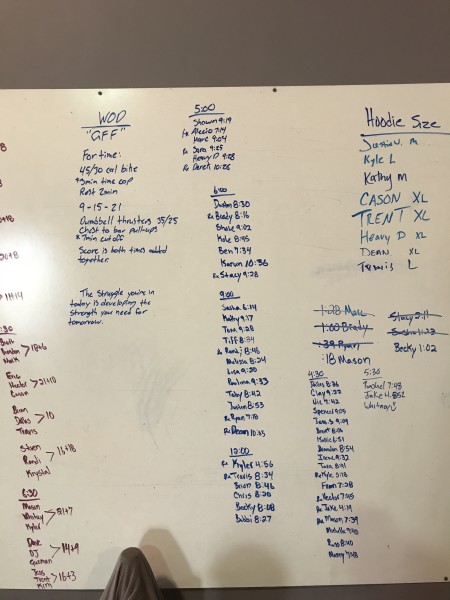 WOD
"GFF"
For time:
45/30 cal bike
*3min time cap
Rest 2min
9-15-21
Dumbbell thrusters 35/25
Chest to bar pull-ups
*7min cutoff
Score is both times added
together.
The Struggle you're in
today is developing the
strength you need for
tomorrow.
5:00
Shawn 9:19
Alecio 7:14
Marc 9:04
Rx Sara 9:25
Heavy D 9:28
Rx Derek 10:26
6:00
Dustin 8:30
Rx Brady 8:16
Shane 9:02
Kole 8:45
Ben 7:34
Karun 10:36
Rx Stacy 9:28
9:00
Sasha 6:14
Kathy 9:17
Tara 9:28
Tiff 8:34
Rx Randi 8:46
Melissa 8:24
Lisa 9:20
Paulina 9:33
Toby 8:42
Justin 8:53
Rx Ryan 7:18
Rx Deann 10:35
12:00
Rx Kyler 4:56
Rx Travis 8:34
Brian 8:46
Chris 8:20
Becky 8:08
Bobbi 8:27
Hoodie Size
Justin V. M
Kyle L
Kathy M
CASON XL
TRENT XL
Heavy D XL
DEAN XL
Travis L
1:28 Marc
1:00 Brady
:39 Ryan
:18 Mason
Stacy 2:11
Sasha 1:22
Becky 1:02
4:30
Clay 9:22
Vic 7:42
Spencer 9:09
Brandon 8:54
Irene 9:32
Tara 8:41
Rx Kyle 5:18
Fran 7:28
Rx Hector 7:45
Rx Jake 4:19
Rx Mason 7:39
Russ 8:40
Manny 7:48
5:30
Rachel 7:43
Whitney
Brandon
Mark
18+6
Eric
Hector
Cason
21+10
Brian
Dallas
Travis
10
Steven
Randi
Krystal
15+18
6:30
Mason
Whitney
Kyler
21+7
Dave
DJ
Guzman
14+9
Jess
Trent
Kim
16+3